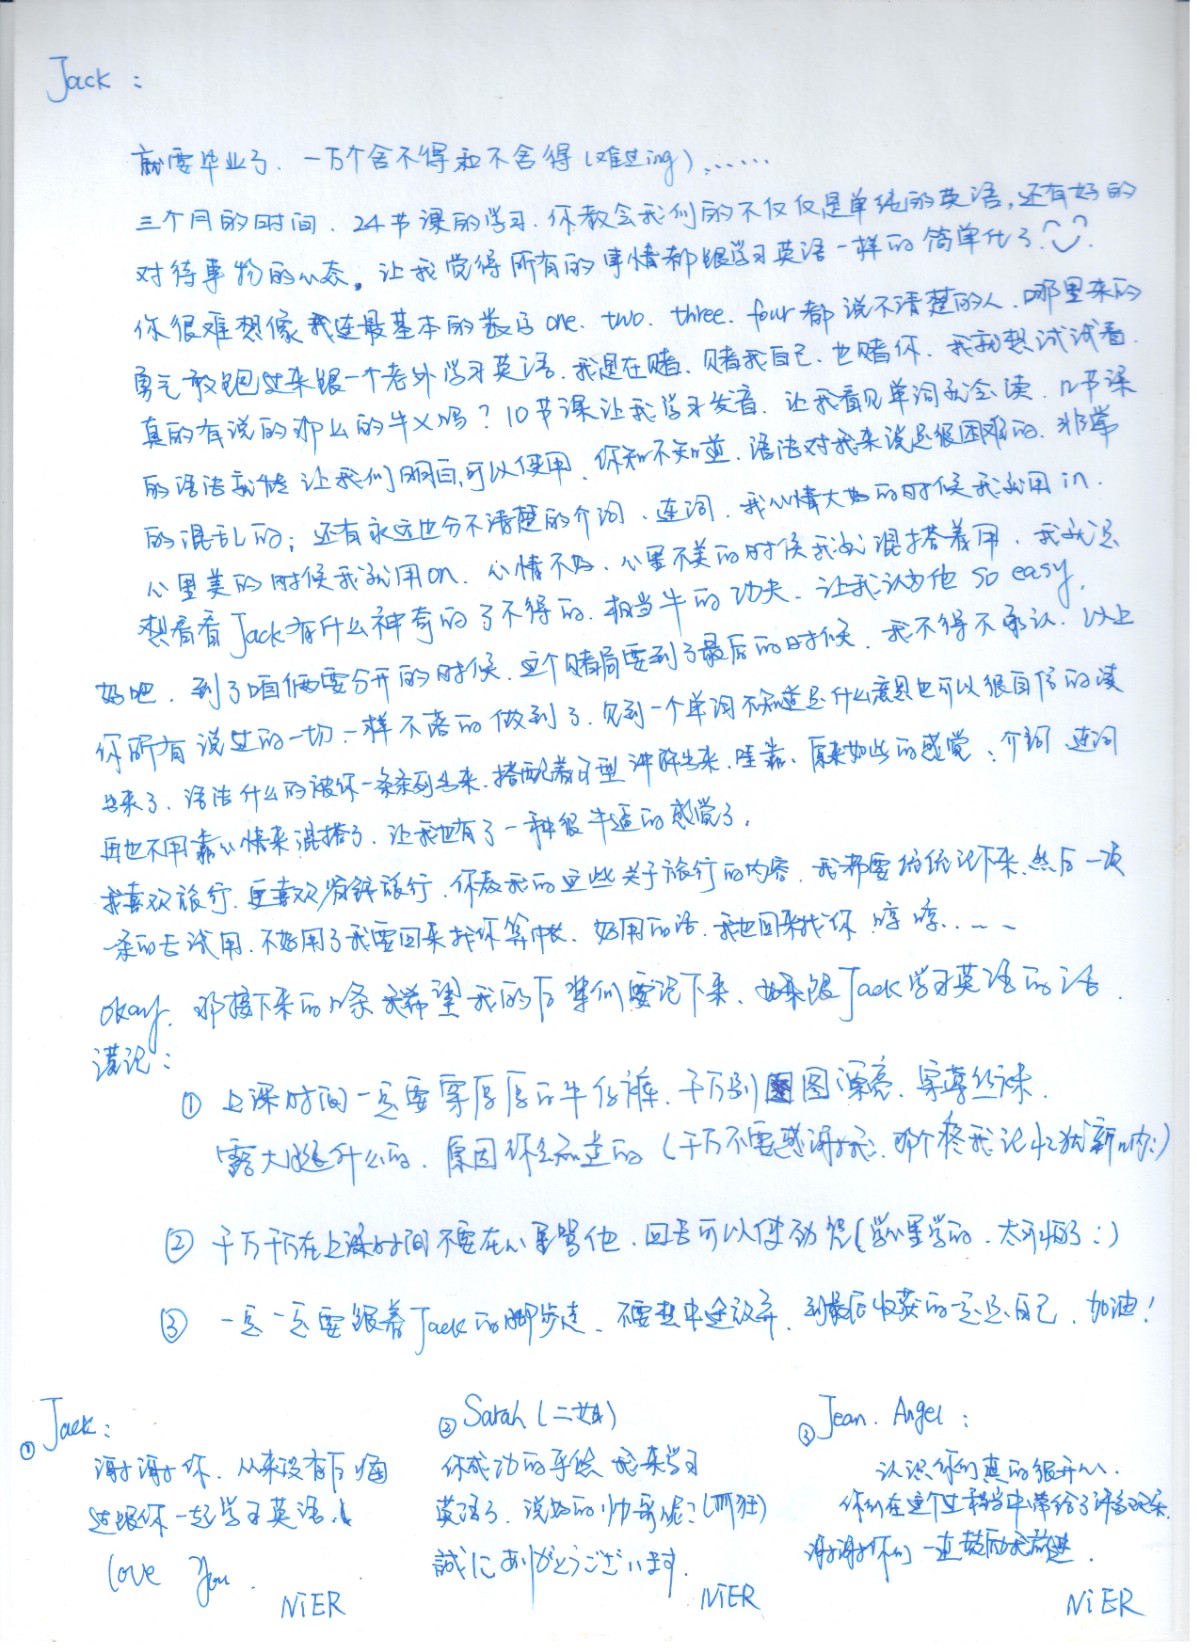 Jack：
就要毕业了、一万个舍不得和不舍得（难过ing）……
三个月的时间、24节课的学习、你教会我们的不仅仅是单纯的英语，还有好的
对待事物的心态。让我觉得所有的事情都跟学习英语一样的简单化了
你很难想像我连最基本的数字one、two、three、four都说不清楚的人、哪里来的
勇气敢跑过来跟一个老外学习英语、我是在赌、赌我自己、也赌你、我就想试试看、
真的有说的那么的牛X吗？10节课让我学习发音、让我看见单词就会读、几节课
的语法就能让我们明白，可以使用、你知不知道、语法对我来说是很困难的、非常
的混乱的；还有永远也分不清楚的介词、连词、我心情大好的时候我就用in、
心里美的时候我就用on、心情不好、心里不美的时候我就混搭着用、我就是
想看看Jack有什么神奇的了不得的、相当牛的功夫、让我认为他so easy、
好吧、到了咱俩要分开的时候、这个赌局要到了最后的时候、我不得不承认、以上
你所有说过的一切一样不落的做到了、见到一个单词不知道是什么意思也可以很自信的读
出来了、语法什么的被你一条条列出来、搭配着句型讲解出来、哇靠、原来如此的感觉、介词 连词
再也不用靠心情来混搭了、让我也有了一种很牛逼的感觉了。
我喜欢旅行、更喜欢穷游旅行、你教我的这些关于旅行的内容、我都要统统记下来、然后一次
一条的去试用、不好用了我要回来找你算帐、好用的话、我也回来找你 哼哼、……
okay、那接下来的几条我希望我的后辈们要记下来、如果跟Jack学习英语的话、
谨记：
① 上课时间一定要穿厚厚的牛仔裤、千万别图漂亮、穿薄丝袜、
露大腿什么的、原因你会知道的（千万不要感谢我、那个疼我记忆犹新的：）
② 千万千万在上课时间不要在心里骂他、回去可以使劲儿（学心里学的、太可怕了：）
③ 一定一定要跟着Jack的脚步走、不要想中途放弃、到最后收获的一定是自己、加油！
① Jack：
谢谢你、从来没有后悔
过跟你一起学习英语、
love you.
NiER
② Sarah（二姐）
你成功的手 我来学习
英语了、说好的帅哥呢？（抓狂）
誠にありがとうございます.
NiER
③ Jean. Angel：
认识你们真的很开心、
你们在这个过程当中带给了许多欢乐、
谢谢你们一直鼓励我前进、
NiER